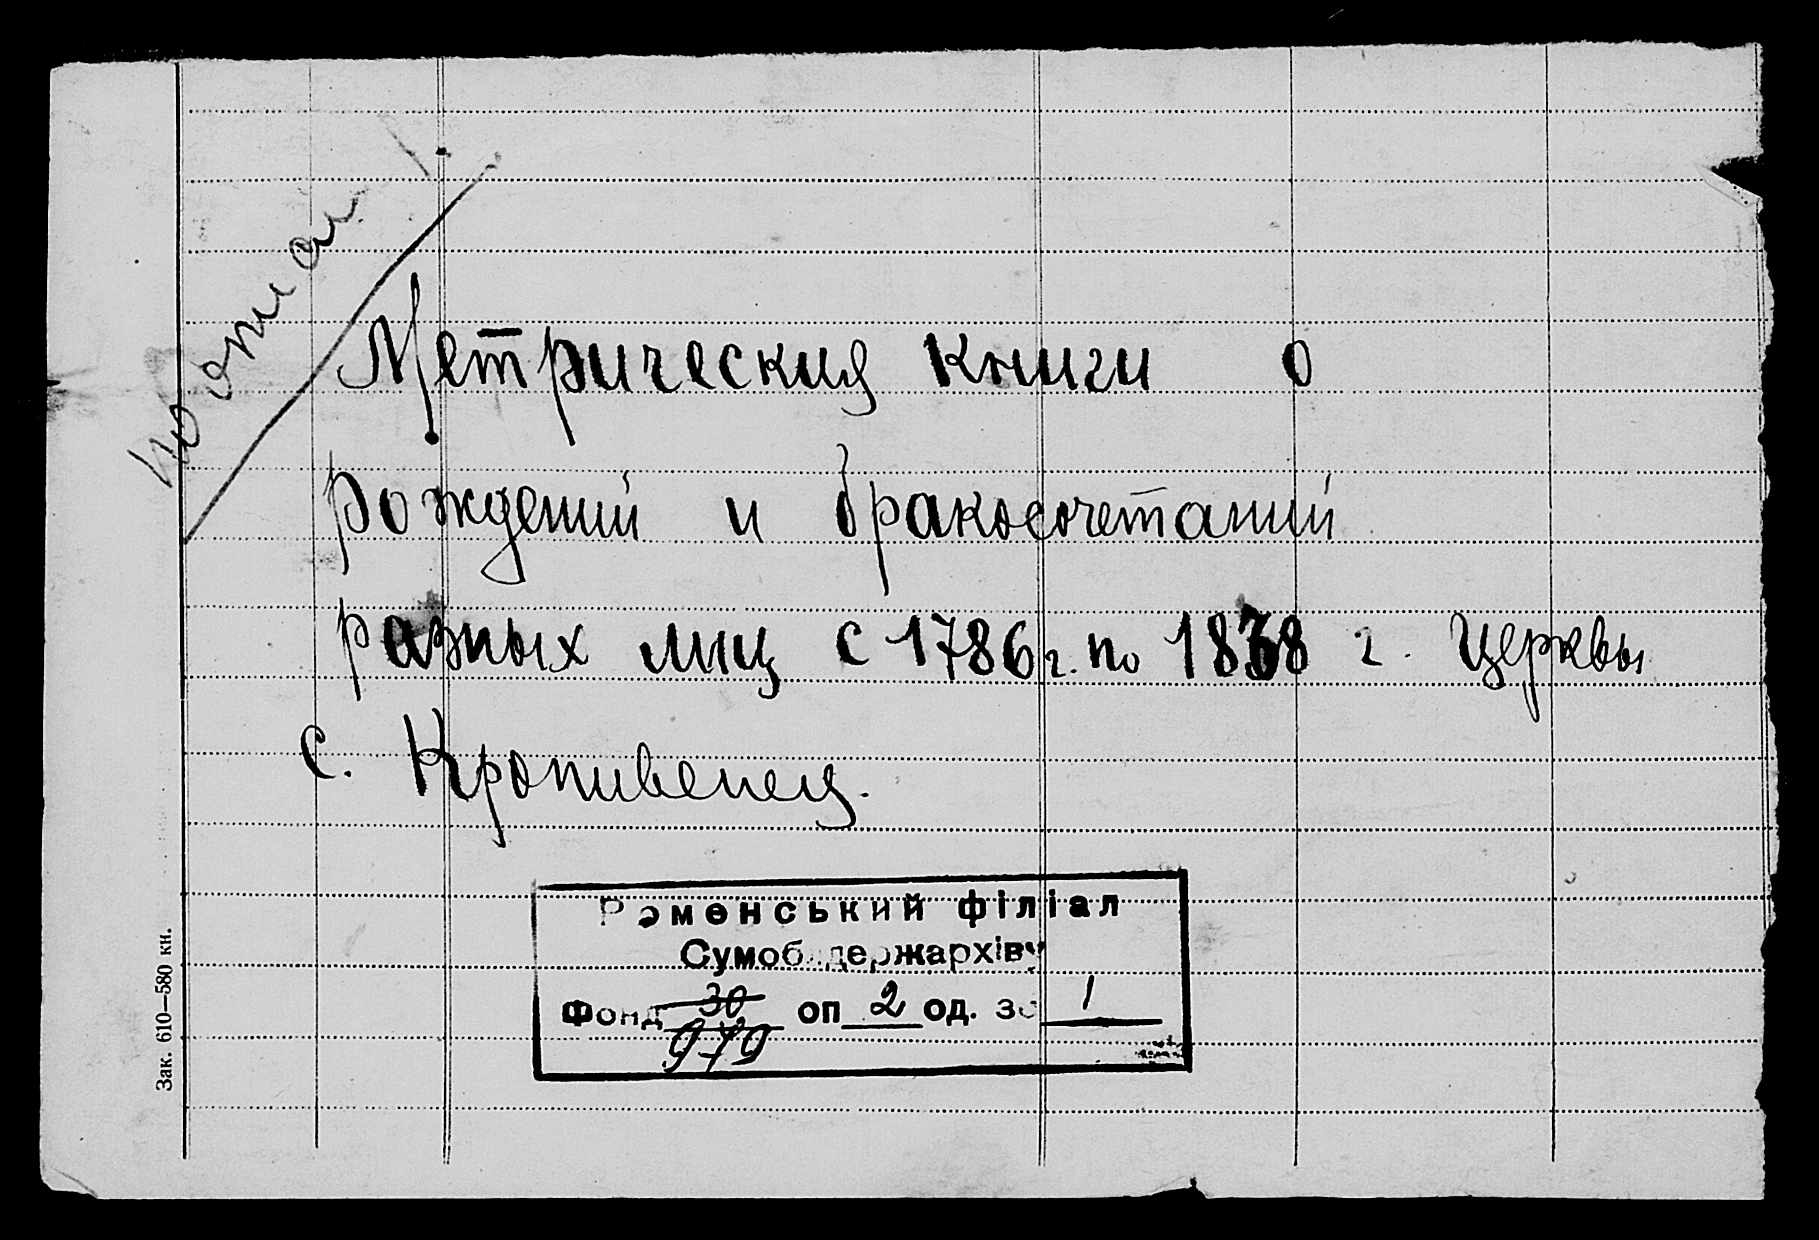 Метрическия книги о
рождений и бракосочетаний
разных лиц с 1786 г. по 1838 г. Церквы
с. Кропивенец.
Роменський філіал
Сумоблдержархіву
Фонд 30 оп 2 од. зб 1
979
Зак. 610—580 кн.